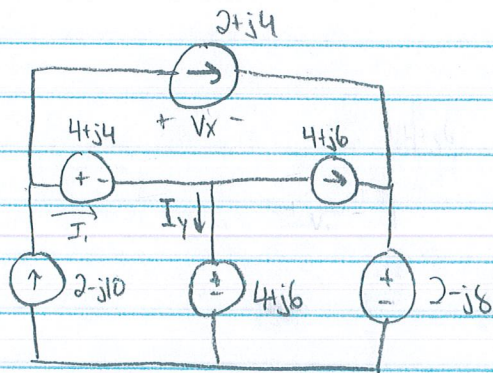 2+j4
+ Vx -
4+j4
4+j6
+ -
I₁
Iy
2-j10
+
-
4+j6
+
-
2-j8